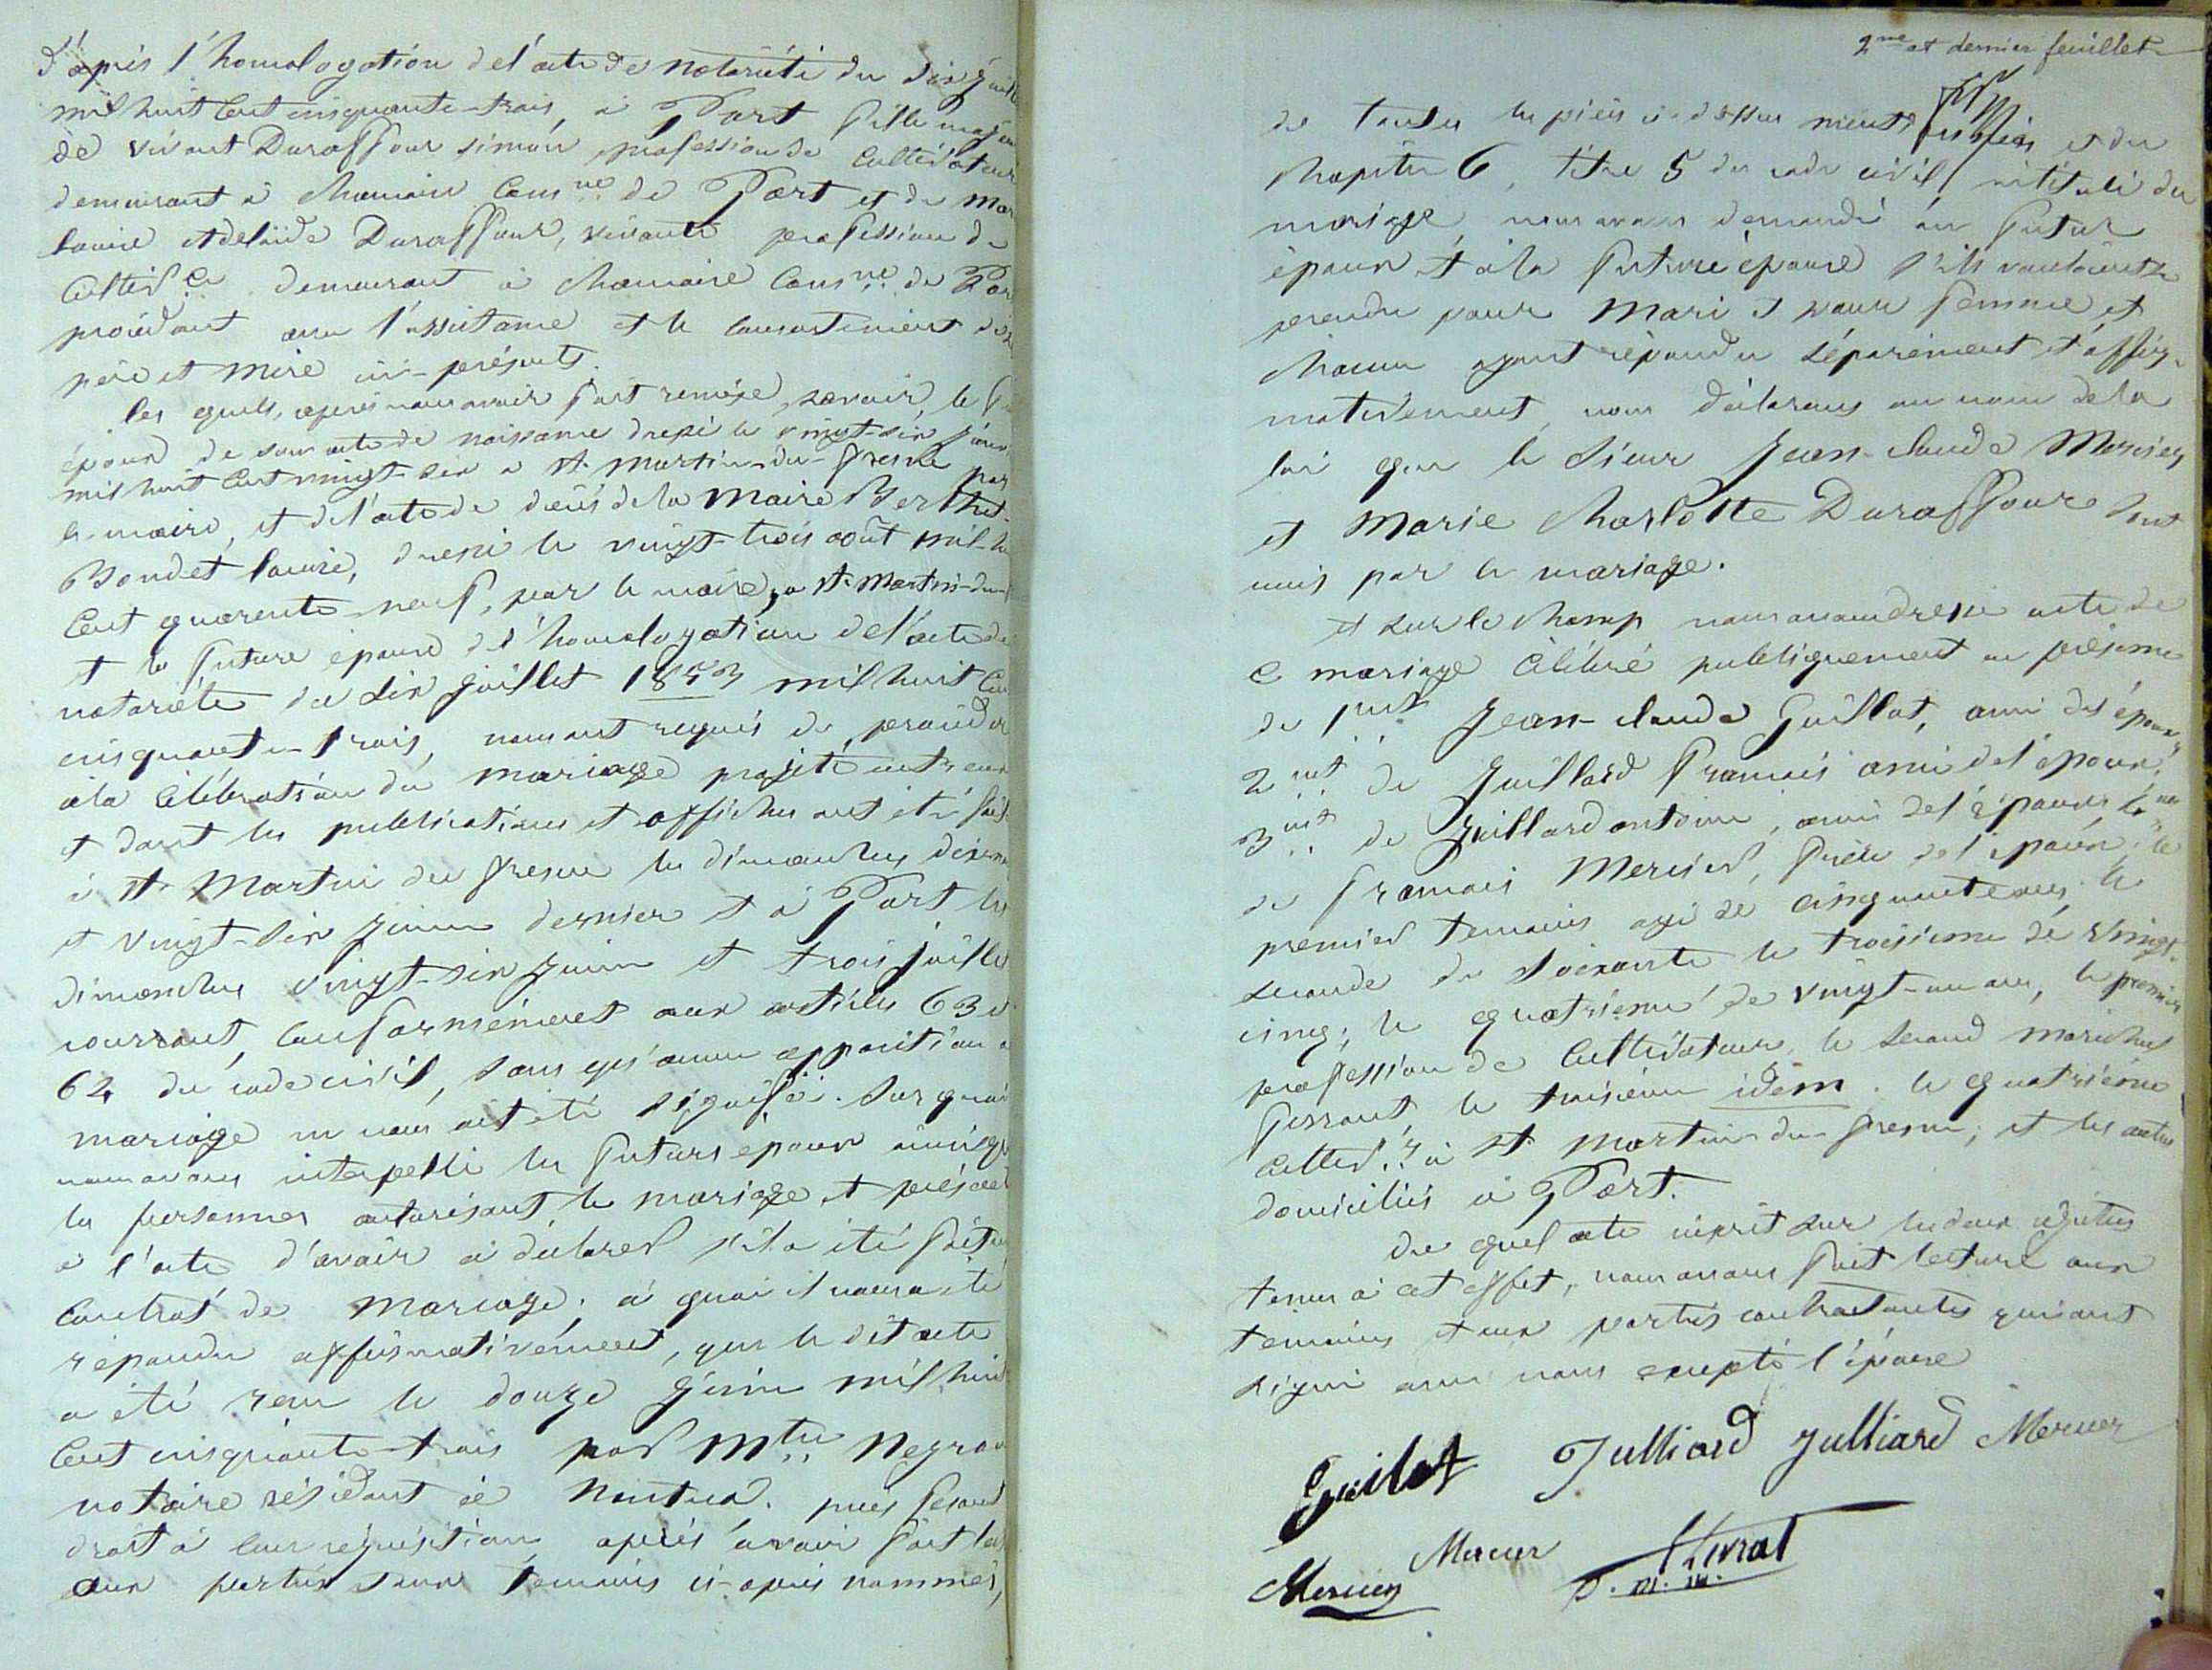 d'après l'homologation de l'acte de notoriété du six juill
mil huit Cent cinquante-trois, à Port fille majeu
de vivant Duraffour simon, profession de Cultivateur
demeurant à chamoise Com ne de Port et de Mar
Louise Adelaïde Duraffour, vivante profession de
Cultiv ce demeurant à chamoise Com ne de Por
procédant avec l'assistance et le consentement des
père et mère ici-présents.
les quels, après nous avoir fait remise, savoir, le f
époux de son acte de naissance dressé le vingt-six janv
mil huit Cent vingt-six à St. Martin-du-fresne par
le maire, et de l'acte de décès de la Marie Berthet
Bondet Louise, dressé le vingt-trois août mil-hu
Cent quarente-neuf, par le maire, a St. Martin-du-f
et la future épouse de l'homologation de l'acte de
notoriété du six juillet 1853 mil huit Cen
cinquante-trois, nous ont requis de procéder
à la Célébration du mariage projeté entr'eux
et dont les publications et affiches ont été fait
à St. Martin du fresne les dimanches dixneu
et vingt-six juin dernier et à Port les
dimanches vingt-six juin et trois juille
courrant, Conformément aux articles 63 et
64 du code civil, sans qu'aucune opposition a
mariage ne nous ait été signifiée. Sur quoi
nous avons interpellé les futurs époux ainsi qu
les personnes autorisant le mariage et présent
à l'acte d'avoir à déclarer s'il a été fait
Contrat de Mariage; à quoi il nous a été
répondu affirmativement, que le dit acte
a été reçu le douze juin mil huit
Cent cinquante-trois par Mtre Negro
notaire résidant à Nantua. puis fesant
droit à leur réquisition, après avoir fait lec
aux parties et aux témoins ci-après nommés,
2me et dernier feuillet
de toutes les pièces ci-dessus et du
Chapitre 6, titre 5 du code civil, intitulé du
mariage, nous avons demandé au futur
époux et à la future épouse s'ils voulaient se
prendre pour Mari et pour femme, et
chacun ayant répondu séparément et affir-
mativement, nous déclarons au nom de la
loi que le Sieur Jean-claude Mercier
et Marie Charlotte Duraffour sont
unis par le mariage.
et sur le champ nous avons dressé acte de
ce mariage Célébré publiquement en présence
de 1ent Jean-claude Guillot, ami des époux
2ent de Juillard francois ami de l'époux,
3ent de Juillard antoine, ami de l'époux, 4ent
de francois Mercier, frère de l'époux; le
premier témoins agé de Cinquante ans le
seconde de soixante le troisième de vingt-
cinq; le quatrième de vingt-un ans, le premier
profession de Cultivateur, le second marechal
ferrant, le troisième idem. le quatrième
Cultiv.r à St. Martin-du-fresne; et les autres
domiciliés à Port.
du quel acte inscrit sur les deux régistres
tenus à cet effet, nous avons fait lecture aux
témoins et aux parties contractantes qui ont
signé avec nous excepté l'épouse
Guilot Julliard Julliard Mercier
Mercier Mercier